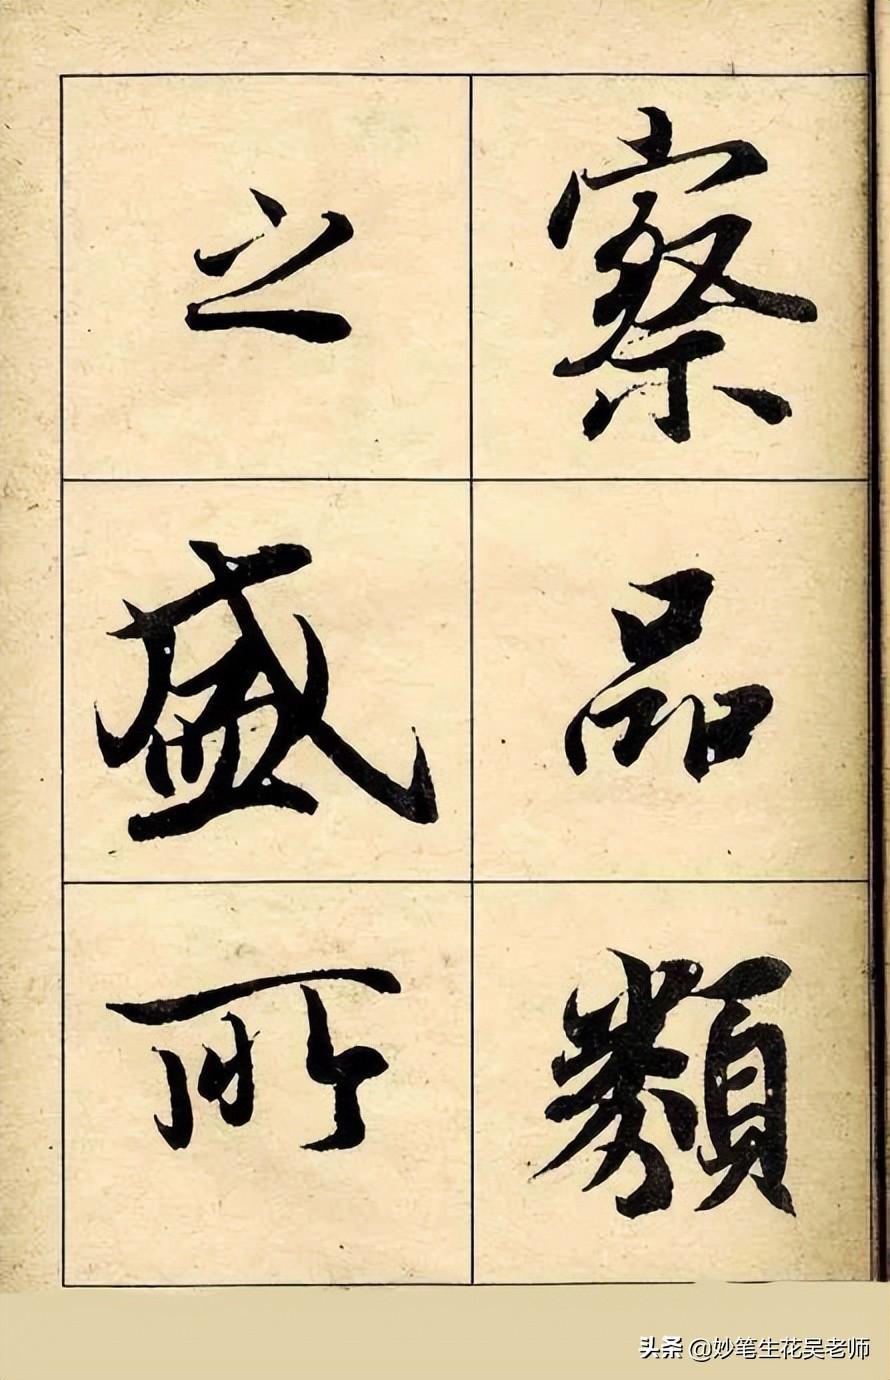 察品類
之盛所
头条 @妙笔生花吴老师